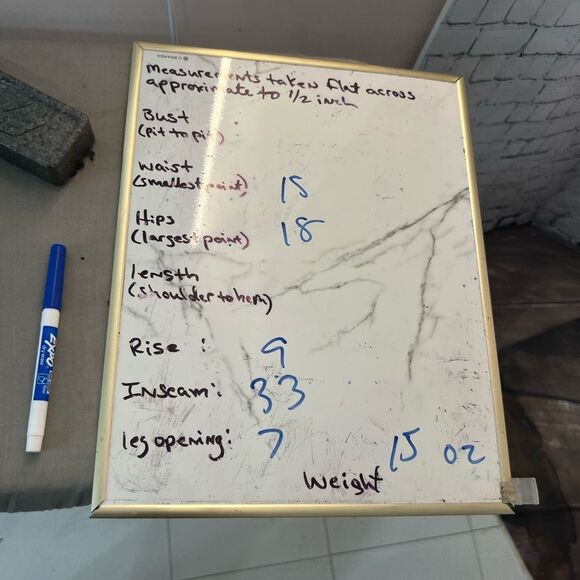 Measurements taken flat across
approximate to 1/2 inch
Bust
(pit to pit)
Waist
(smallest point) 15
Hips
(largest point) 18
length
(shoulder to hem)
Rise : 9
Inseam: 33
leg opening: 7
Weight 15 oz
EXPO